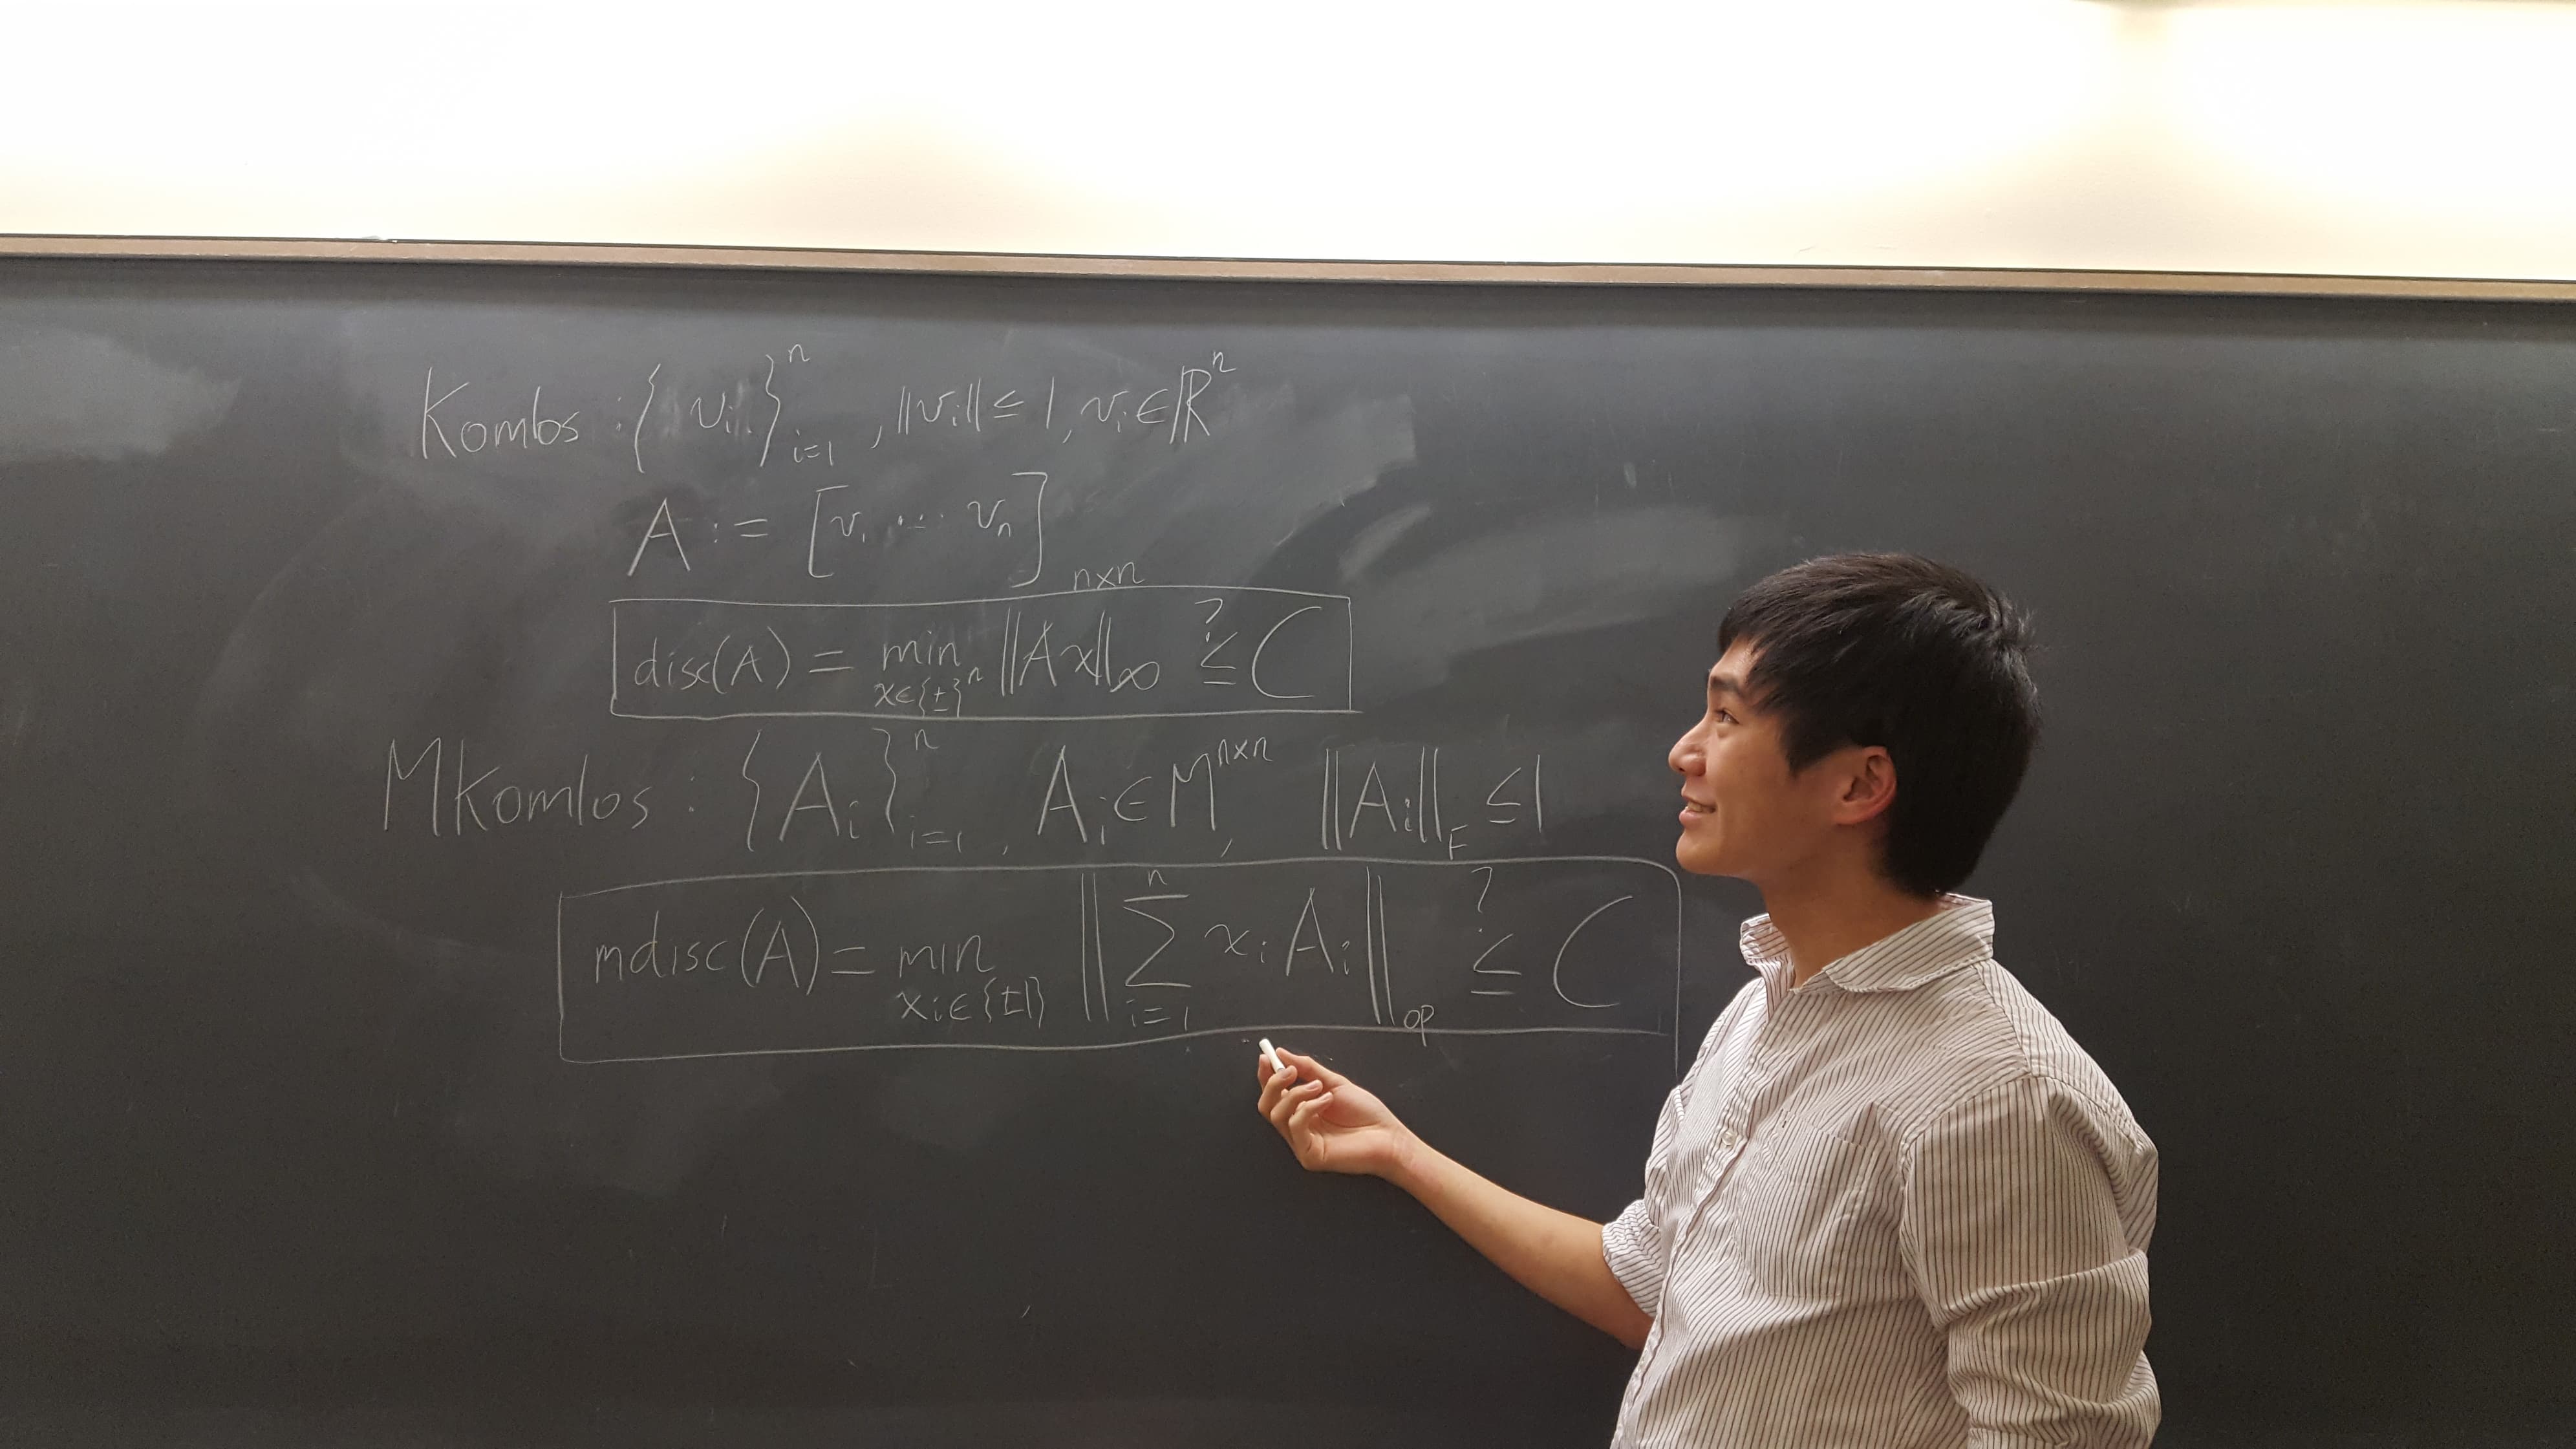 Komlos : {v_i}_{i=1}^n , ||v_i|| ≤ 1, v_i ∈ ℝ^n
A := [v_1 ... v_n]_{n×n}
disc(A) = min_{x∈{±}^n} ||Ax||_∞ ≤^? C
MKomlos : {A_i}_{i=1}^n , A_i ∈ M^{n×n} , ||A_i||_F ≤ 1
mdisc(A) = min_{x_i∈{±1}} ||∑_{i=1}^n x_i A_i||_{op} ≤^? C